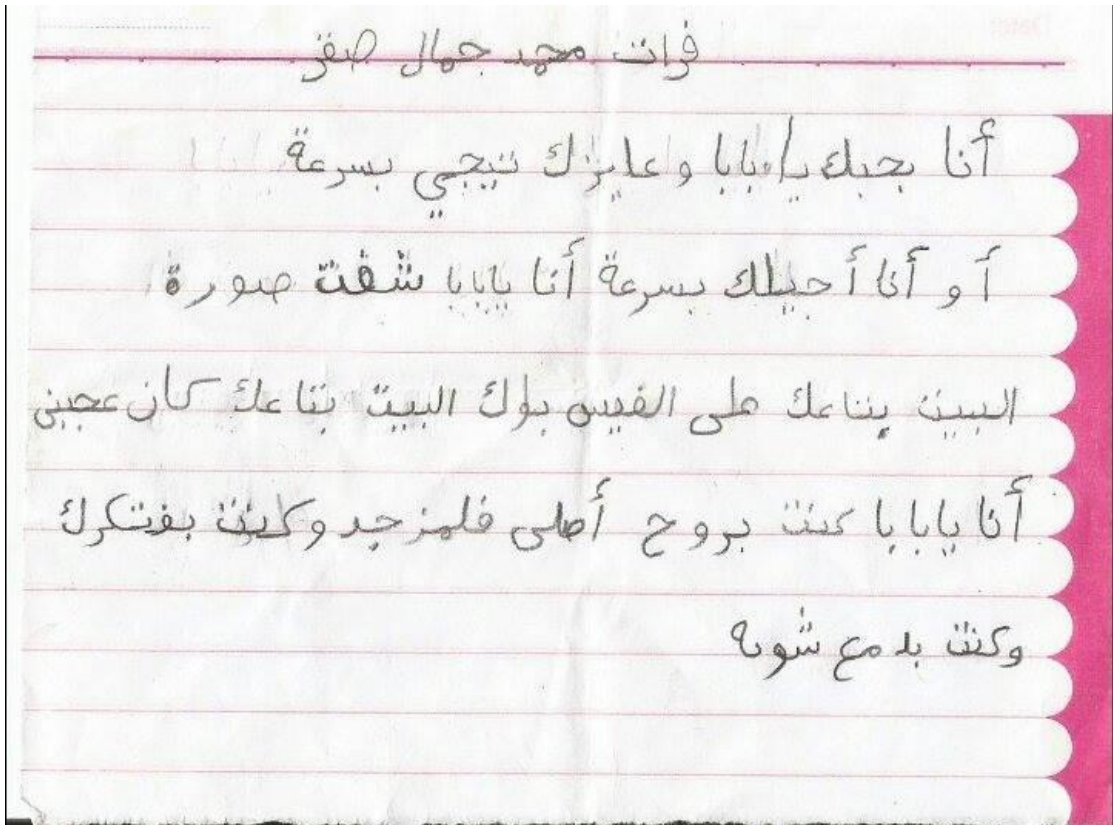 فرات محمد جمال صقر
أنا بحبك يا بابا وعايزك تيجي بسرعة
أو أنا أجيلك بسرعة أنا يابابا شفت صورة
البيت بتاعك على الفيس بوك البيت بتاعك كان عجبني
أنا يابابا كنت بروح أصلى فلمزجد وكنت بفتكرك
وكنت بدمع شويه